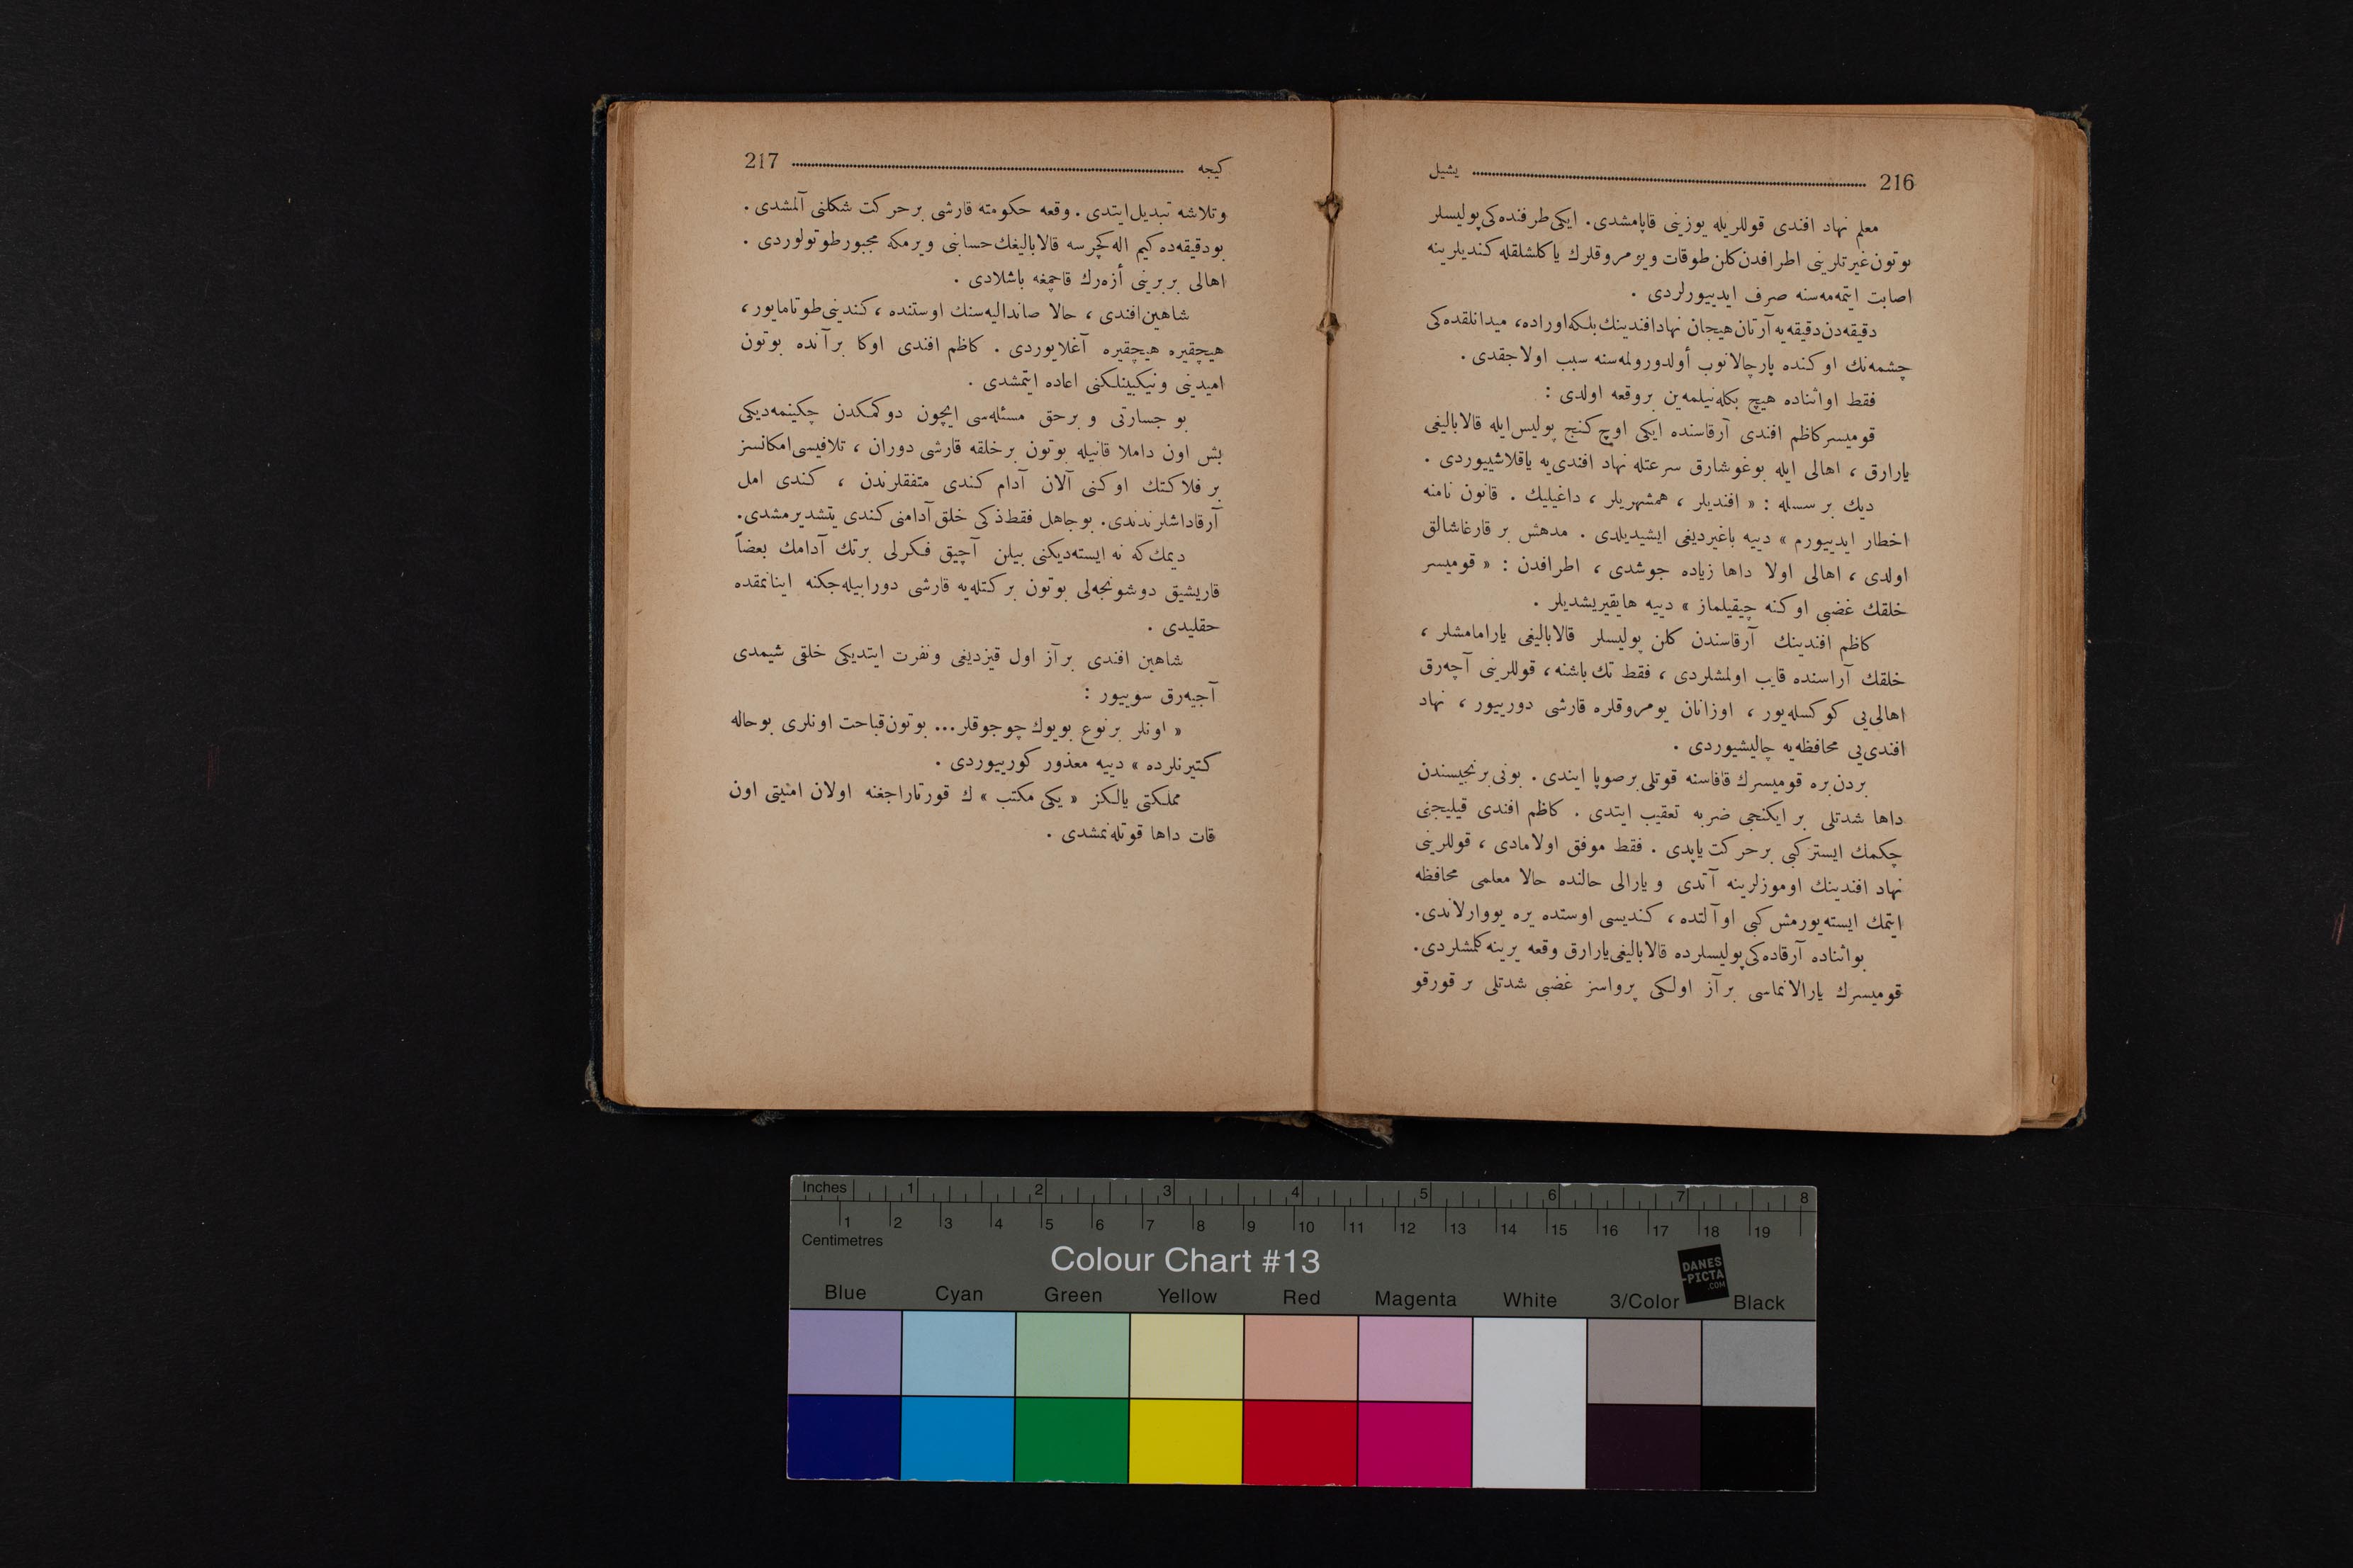 216 يشيل
معلم نهاد افندى قوللريله يوزينى قاپامشدى. ايكى طرفنده كى پوليسلر
بوتون غيرتلرينى اطرافدن كلن طوقات ويومروقلرك ياكلشلقله كنديلرينه
اصابت ايتمه مه سنه صرف ايدييورلردى .
دقيقه دن دقيقه يه آرتان هيجان نهاد افندينك بلكه اوراده، ميدانلقده كى
چشمه نك اوكنده پارچالانوب أولدورولمه سنه سبب اولاجقدى .
فقط اواثناده هيچ بكله نيلمه ين بروقعه اولدى :
قوميسر كاظم افندى آرقاسنده ايكى اوچ كنج پوليس ايله قالاباليغى
يارارق ، اهالى ايله بوغوشارق سرعتله نهاد افندى يه ياقلاشييوردى .
ديك بر سسله : « افنديلر ، همشهريلر ، داغيليك . قانون نامنه
اخطار ايدييورم » دييه باغيرديغى ايشيديلدى . مدهش بر قارغاشالق
اولدى ، اهالى اولا داها زياده جوشدى ، اطرافدن : « قوميسر
خلقك غضبى اوكنه چيقيلماز » دييه هايقيريشديلر .
كاظم افندينك آرقاسندن كلن پوليسلر قالاباليغى يارامامشلر ،
خلقك آراسنده قايب اولمشلردى ، فقط تك باشنه ، قوللرينى آچه رق
اهالى يى كوكسله يور ، اوزانان يومروقلره قارشى دورييور ، نهاد
افندى يى محافظه يه چاليشيوردى .
بردن بره قوميسرك قافاسنه قوتلى برصوپا ايندى . بونى برنجيسندن
داها شدتلى بر ايكنجى ضربه تعقيب ايتدى . كاظم افندى قيليجنى
چكمك ايستر كبى برحركت ياپدى . فقط موفق اولامادى ، قوللرينى
نهاد افندينك اوموزلرينه آتدى و يارالى حالنده حالا معلمى محافظه
ايتمك ايسته يورمش كبى اوآلتده ، كنديسى اوستده يره يووارلاندى.
بواثناده آرقاده كى پوليسلرده قالاباليغى يارارق وقعه يرينه كلمشلردى.
قوميسرك يارالانماسى برآز اولكى پرواسز غضبى شدتلى بر قورقو
كيجه 217
وتلاشه تبديل ايتدى . وقعه حكومته قارشى برحركت شكلنى آلمشدى .
بودقيقه ده كيم اله كچرسه قالاباليغك حسابنى ويرمكه مجبور طوتولوردى .
اهالى بربرينى أزه رك قاچمغه باشلادى .
شاهين افندى ، حالا صانداليه سنك اوستنده ، كندينى طوتامايور ،
هيچقيره هيچقيره آغلايوردى . كاظم افندى اوكا برآنده بوتون
اميدينى ونيكبينلكنى اعاده ايتمشدى .
بو جسارتى و برحق مسئله سى ايچون دوكمكدن چكينمه ديكى
بش اون داملا قانيله بوتون برخلقه قارشى دوران ، تلافيسى امكانسز
بر فلاكتك اوكنى آلان آدام كندى متفقلرندن ، كندى امل
آرقاداشلرندندى. بوجاهل فقط ذكى خلق آدامنى كندى يتشديرمشدى.
ديمك كه نه ايسته ديكنى بيلن آچيق فكرلى برتك آدامك بعضاً
قاريشيق دوشونجه لى بوتون بركتله يه قارشى دورابيله جكنه اينانمقده
حقليدى .
شاهين افندى برآز اول قيزديغى ونفرت ايتديكى خلقى شيمدى
آجيه رق سوييور :
« اونلر برنوع بويوك چوجوقلر... بوتون قباحت اونلرى بوحاله
كتيرنلرده » دييه معذور كورييوردى .
مملكتى يالكز « يكى مكتب » ك قورتاراجغنه اولان امنيتى اون
قات داها قوتله نمشدى .
Inches 1 2 3 4 5 6 7 8
1 2 3 4 5 6 7 8 9 10 11 12 13 14 15 16 17 18 19
Centimetres
Colour Chart #13
DANES
-PICTA
.COM
Blue Cyan Green Yellow Red Magenta White 3/Color Black